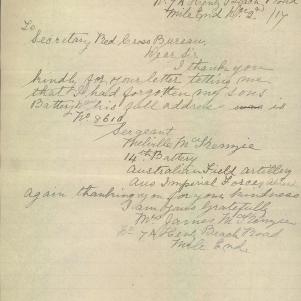 Mile End
To
Secretary Red Cross Bureau,
Dear Sir
I thank you
kindly for your letter telling me
that I had forgotten my sons
Battery his full address is
No 8610
Sergeant
Melville McKenzie
14th Battery
Australian Field artillery
Aus Imperial Forces
Again thanking you for your kindness
I am yours gratefully
Mrs James McKenzie
7A Henly Beach Road
Mile End